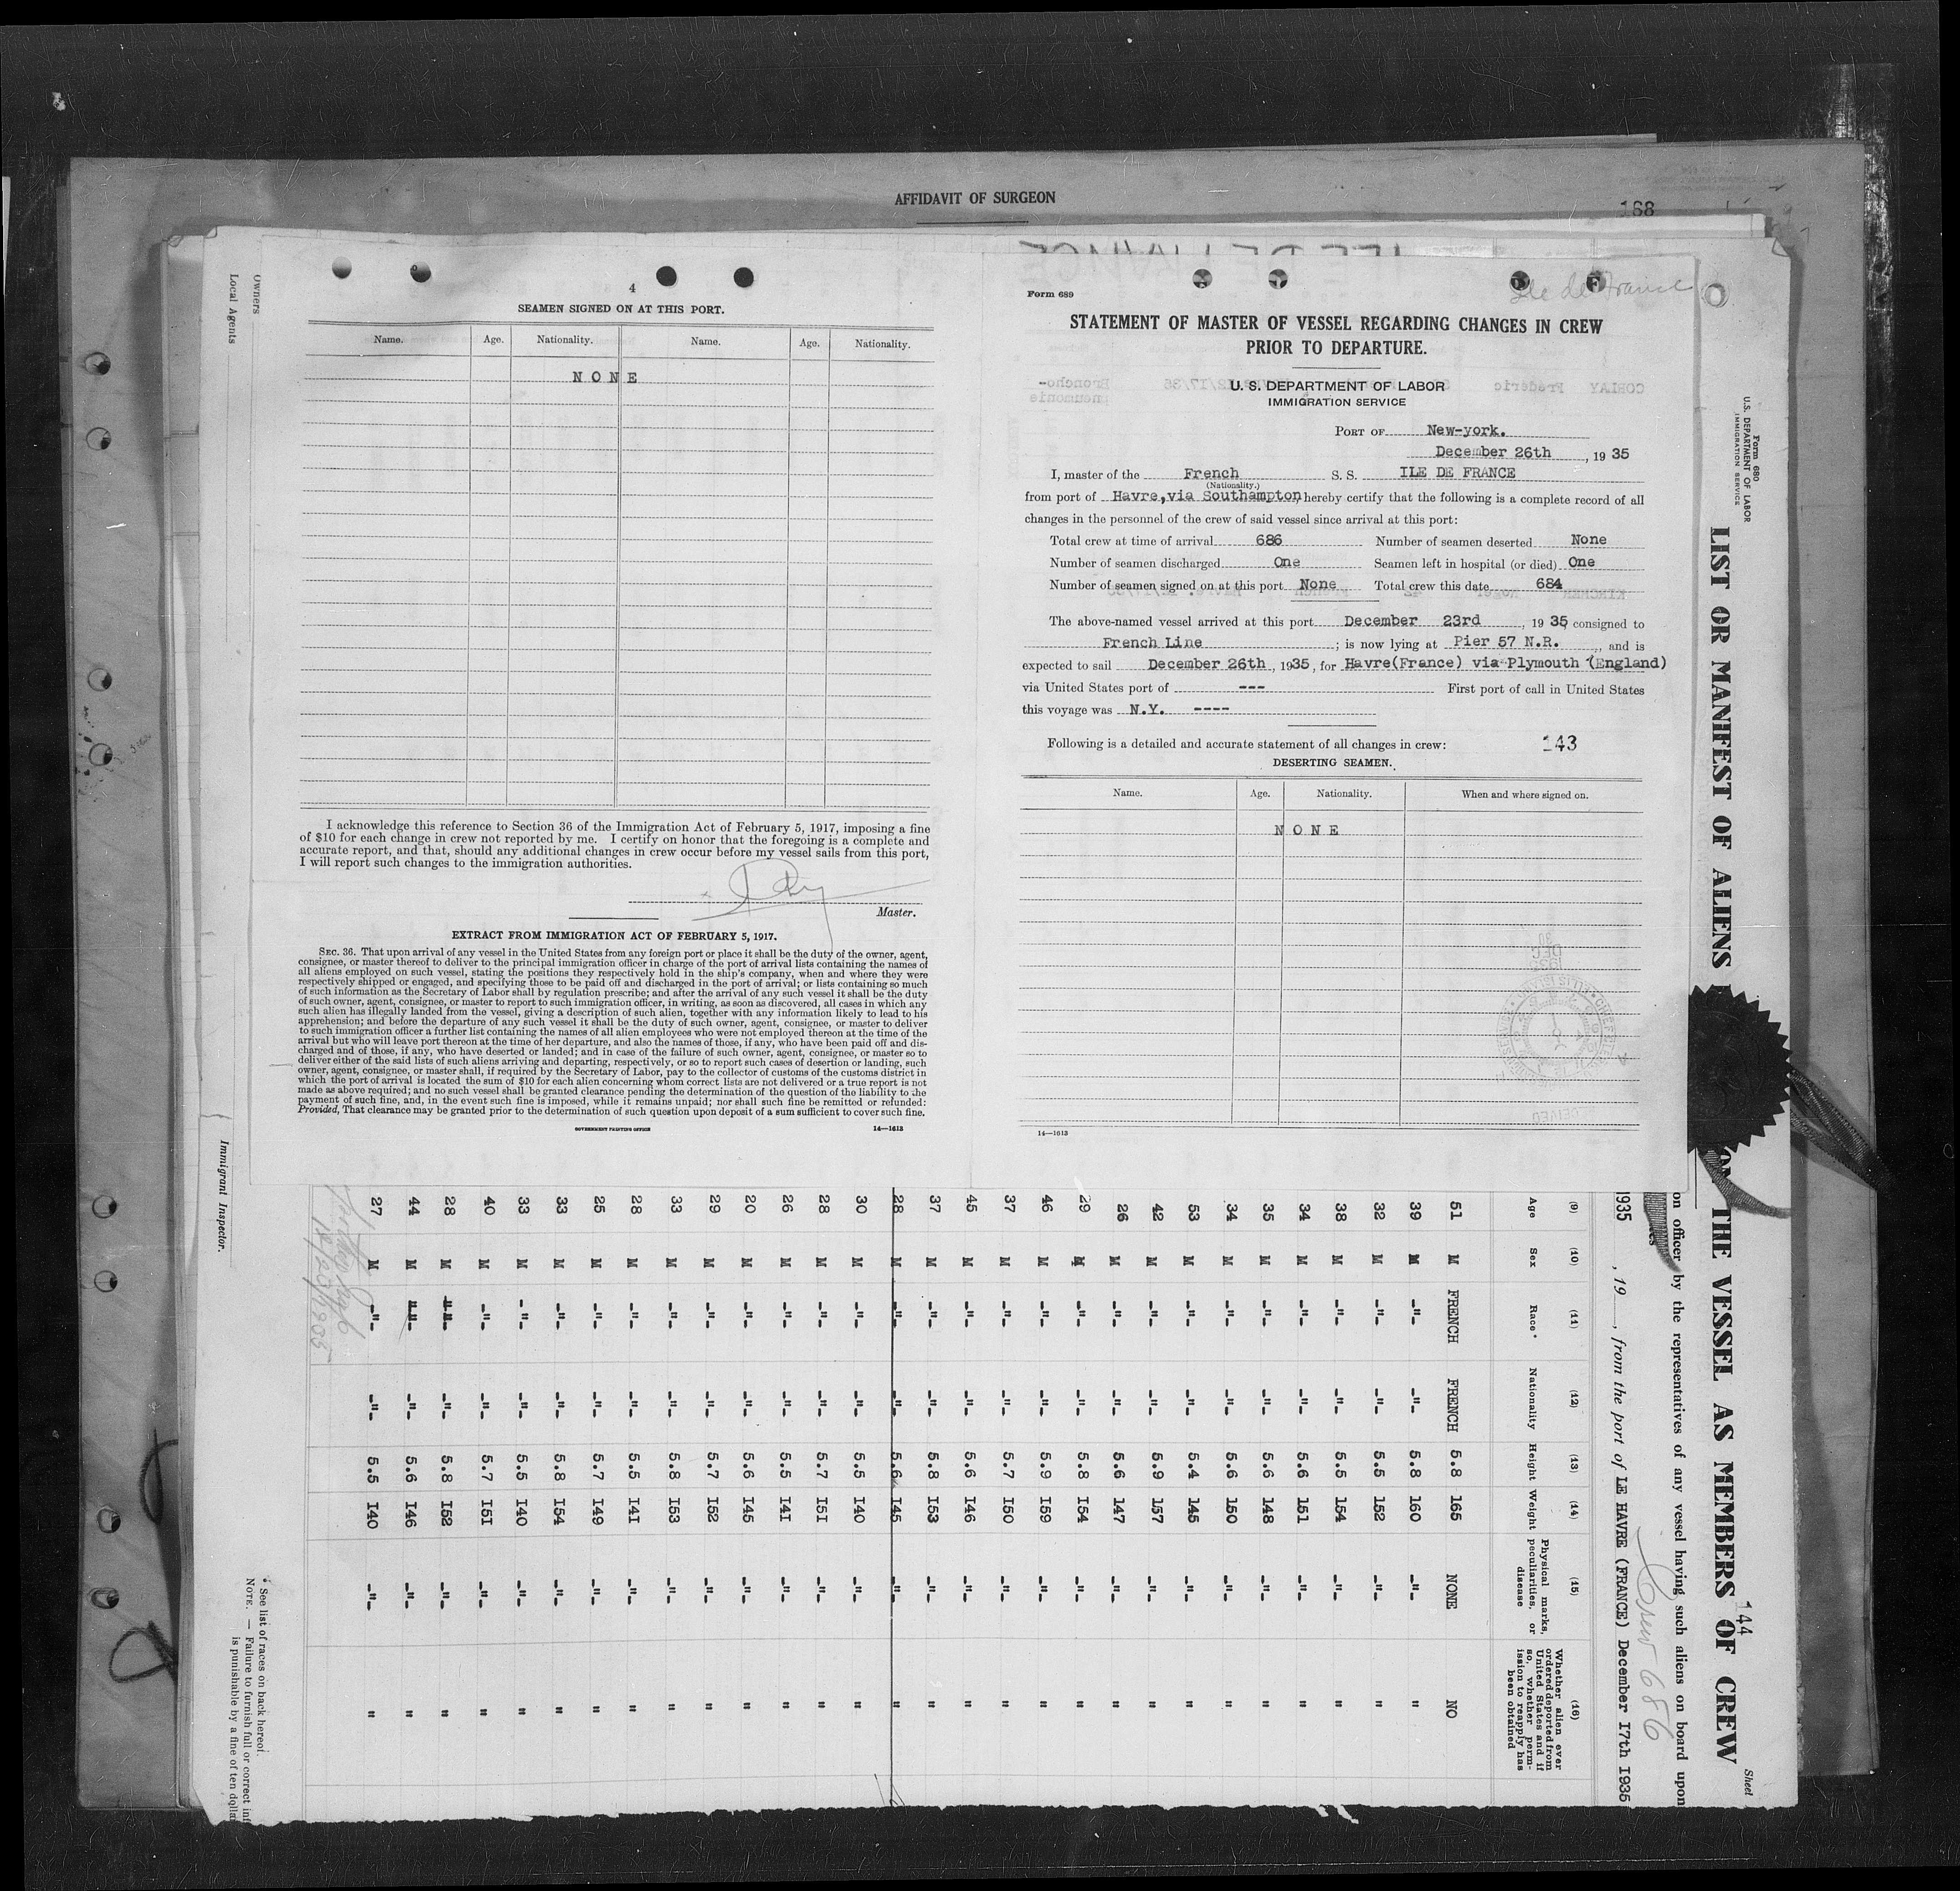 AFFIDAVIT OF SURGEON
168
Owners
Local Agents
Immigrant Inspector.
4
SEAMEN SIGNED ON AT THIS PORT.
Name. Age. Nationality. Name. Age. Nationality.
NONE
I acknowledge this reference to Section 36 of the Immigration Act of February 5, 1917, imposing a fine
of $10 for each change in crew not reported by me. I certify on honor that the foregoing is a complete and
accurate report, and that, should any additional changes in crew occur before my vessel sails from this port,
I will report such changes to the immigration authorities.
Master.
EXTRACT FROM IMMIGRATION ACT OF FEBRUARY 5, 1917.
SEC. 36. That upon arrival of any vessel in the United States from any foreign port or place it shall be the duty of the owner, agent,
consignee, or master thereof to deliver to the principal immigration officer in charge of the port of arrival lists containing the names of
all aliens employed on such vessel, stating the positions they respectively hold in the ship's company, when and where they were
respectively shipped or engaged, and specifying those to be paid off and discharged in the port of arrival; or lists containing so much
of such information as the Secretary of Labor shall by regulation prescribe; and after the arrival of any such vessel it shall be the duty
of such owner, agent, consignee, or master to report to such immigration officer, in writing, as soon as discovered, all cases in which any
such alien has illegally landed from the vessel, giving a description of such alien, together with any information likely to lead to his
apprehension; and before the departure of any such vessel it shall be the duty of such owner, agent, consignee, or master to deliver
to such immigration officer a further list containing the names of all alien employees who were not employed thereon at the time of the
arrival but who will leave port thereon at the time of her departure, and also the names of those, if any, who have been paid off and dis-
charged and of those, if any, who have deserted or landed; and in case of the failure of such owner, agent, consignee, or master so to
deliver either of the said lists of such aliens arriving and departing, respectively, or so to report such cases of desertion or landing, such
owner, agent, consignee, or master shall, if required by the Secretary of Labor, pay to the collector of customs of the customs district in
which the port of arrival is located the sum of $10 for each alien concerning whom correct lists are not delivered or a true report is not
made as above required; and no such vessel shall be granted clearance pending the determination of the question of the liability to the
payment of such fine, and, in the event such fine is imposed, while it remains unpaid; nor shall such fine be remitted or refunded:
Provided, That clearance may be granted prior to the determination of such question upon deposit of a sum sufficient to cover such fine.
GOVERNMENT PRINTING OFFICE 14—1613
Form 689
Ile de France
STATEMENT OF MASTER OF VESSEL REGARDING CHANGES IN CREW
PRIOR TO DEPARTURE.
U. S. DEPARTMENT OF LABOR
IMMIGRATION SERVICE
PORT OF New-york.
December 26th, 19 35
I, master of the French S. S. ILE DE FRANCE
(Nationality.)
from port of Havre,via Southampton, hereby certify that the following is a complete record of all
changes in the personnel of the crew of said vessel since arrival at this port:
Total crew at time of arrival 686 Number of seamen deserted None
Number of seamen discharged One Seamen left in hospital (or died) One
Number of seamen signed on at this port None Total crew this date 684
The above-named vessel arrived at this port December 23rd, 19 35 consigned to
French Line; is now lying at Pier 57 N.R., and is
expected to sail December 26th, 1935, for Havre(France) via Plymouth (England)
via United States port of --- First port of call in United States
this voyage was N.Y. ----
Following is a detailed and accurate statement of all changes in crew: 143
DESERTING SEAMEN.
Name. Age. Nationality. When and where signed on.
NONE
14—1613
Form 680
U.S. DEPARTMENT OF LABOR
IMMIGRATION SERVICE
144
Sheet
LIST OR MANIFEST OF ALIENS ON THE VESSEL AS MEMBERS OF CREW
on officer by the representatives of any vessel having such aliens on board upon
Crew 686
1935, 19, from the port of LE HAVRE (FRANCE) December I7th I935
(9) (10) (11) (12) (13) (14) (15) (16)
Age Sex Race* Nationality Height Weight Physical marks, peculiarities, or disease Whether alien ever ordered deported from United States and if so, whether permission to reapply has been obtained
51 M FRENCH FRENCH 5.8 165 NONE NO
39 M -"- -"- 5.8 160 -"- "
32 M -"- -"- 5.5 152 -"- "
38 M -"- -"- 5.5 154 -"- "
34 M -"- -"- 5.6 151 -"- "
35 M -"- -"- 5.6 148 -"- "
34 M -"- -"- 5.6 150 -"- "
53 M -"- -"- 5.4 145 -"- "
42 M -"- -"- 5.9 157 -"- "
26 M -"- -"- 5.6 147 -"- "
29 M -"- -"- 5.8 I54 -"- "
46 M -"- -"- 5.9 I59 -"- "
37 M -"- -"- 5.7 I50 -"- "
45 M -"- -"- 5.6 I46 -"- "
37 M -"- -"- 5.8 I53 -"- "
28 M -"- -"- 5.6 I45 -"- "
30 M -"- -"- 5.5 I40 -"- "
28 M -"- -"- 5.7 I5I -"- "
26 M -"- -"- 5.5 I4I -"- "
20 M -"- -"- 5.6 I45 -"- "
29 M -"- -"- 5.7 I52 -"- "
33 M -"- -"- 5.8 I53 -"- "
28 M -"- -"- 5.5 I4I -"- "
25 M -"- -"- 5.7 I49 -"- "
33 M -"- -"- 5.8 I54 -"- "
33 M -"- -"- 5.5 I40 -"- "
40 M -"- -"- 5.7 I5I -"- "
28 M -"- -"- 5.8 I52 -"- "
44 M -"- -"- 5.6 I46 -"- "
27 M -"- -"- 5.5 I40 -"- "
* See list of races on back hereof.
NOTE. — Failure to furnish full or correct inf
is punishable by a fine of ten dolla